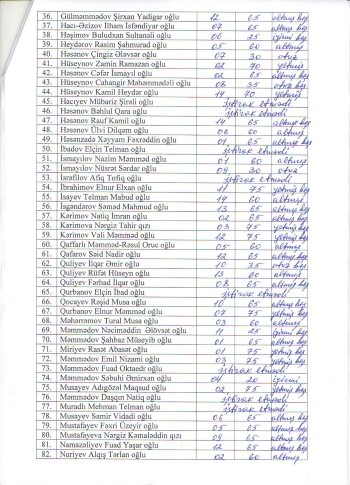 36. Gülməmmədov Şirxan Yadigar oğlu 12 65 altmış beş
37. Hacı-Əzizov İlham İsfəndiyar oğlu 07 65 altmış beş
38. Həşimov Buludxan Sultanəli oğlu 06 25 iyirmi beş
39. Heydərov Rasim Şahmurad oğlu 05 60 altmış
40. Həsənov Çingiz Ələvsər oğlu 07 30 otuz
41. Hüseynov Zamin Ramazan oğlu 02 70 yetmiş
42. Həsənov Cəfər İsmayıl oğlu 02 65 altmış beş
43. Hüseynov Cahangir Məhəmmədəli oğlu 08 35 otuz beş
44. Hüseynov Kamil Heydər oğlu 14 70 yetmiş
45. Hacıyev Mübariz Şirəli oğlu iştirak etmədi
46. Həsənov Bəhlul Qara oğlu iştirak etmədi
47. Həsənov Rauf Kamil oğlu 14 65 altmış beş
48. Həsənov Ülvi Dilqəm oğlu 06 60 altmış
49. Həsənzadə Xəyyam Fəxrəddin oğlu 01 65 altmış beş
50. İbadov Elçin Telman oğlu iştirak etmədi
51. İsmayılov Nazim Məmməd oğlu 01 60 altmış
52. İsmayılov Nüsrət Sərdar oğlu 09 30 otuz
53. İsrafilov Afiq Tofiq oğlu iştirak etmədi
54. İbrahimov Elnur Elxan oğlu 11 75 yetmiş beş
55. İsayev Telman Mabud oğlu 14 60 altmış
56. İsgəndərov Səməd Mahmud oğlu 13 65 altmış beş
57. Kərimov Natiq İmran oğlu 02 65 altmış beş
58. Kərimova Nərgiz Tahir qızı 03 75 yetmiş beş
59. Kərimov Vəli Məmməd oğlu 12 75 yetmiş beş
60. Qaffarlı Məmməd-Rəsul Oruc oğlu 05 60 altmış
61. Qafarov Səid Nadir oğlu 12 65 altmış beş
62. Quliyev İlqar Əmir oğlu 10 35 otuz beş
63. Quliyev Rüfət Hüseyn oğlu 13 60 altmış
64. Quliyev Fərhad İlqar oğlu 08 65 altmış beş
65. Qurbanov Elçin İbad oğlu iştirak etmədi
66. Qocayev Rəşid Musa oğlu 10 65 altmış beş
67. Qurbanov Elnur Məmməd oğlu 07 75 yetmiş beş
68. Məhərrəmov Tural Musa oğlu 03 60 altmış
69. Məmmədov Nəciməddin Əlövsət oğlu 11 25 iyirmi beş
70. Məmmədov Şahbaz Müseyib oğlu 01 65 altmış beş
71. Miriyev Rasət Abasət oğlu 01 75 yetmiş beş
72. Məmmədov Emil Nizami oğlu 03 75 yetmiş beş
73. Məmmədov Fuad Oktaedr oğlu iştirak etmədi
74. Məmmədov Səbuhi Əmirxan oğlu 04 20 iyirmi
75. Musayev Adıgözəl Maqsud oğlu 02 75 yetmiş beş
76. Məmmədov Daşqın Natiq oğlu iştirak etmədi
77. Muradlı Mehman Telman oğlu iştirak etmədi
78. Musayev Samir Vidadi oğlu 06 65 altmış beş
79. Mustafayev Fəxri Üzeyir oğlu 05 65 altmış beş
80. Mustafayeva Nərgiz Kəmaləddin qızı 09 65 altmış beş
81. Namazəliyev Fuad Yaşar oğlu 12 65 altmış beş
82. Nuriyev Alqış Tərlan oğlu 02 60 altmış